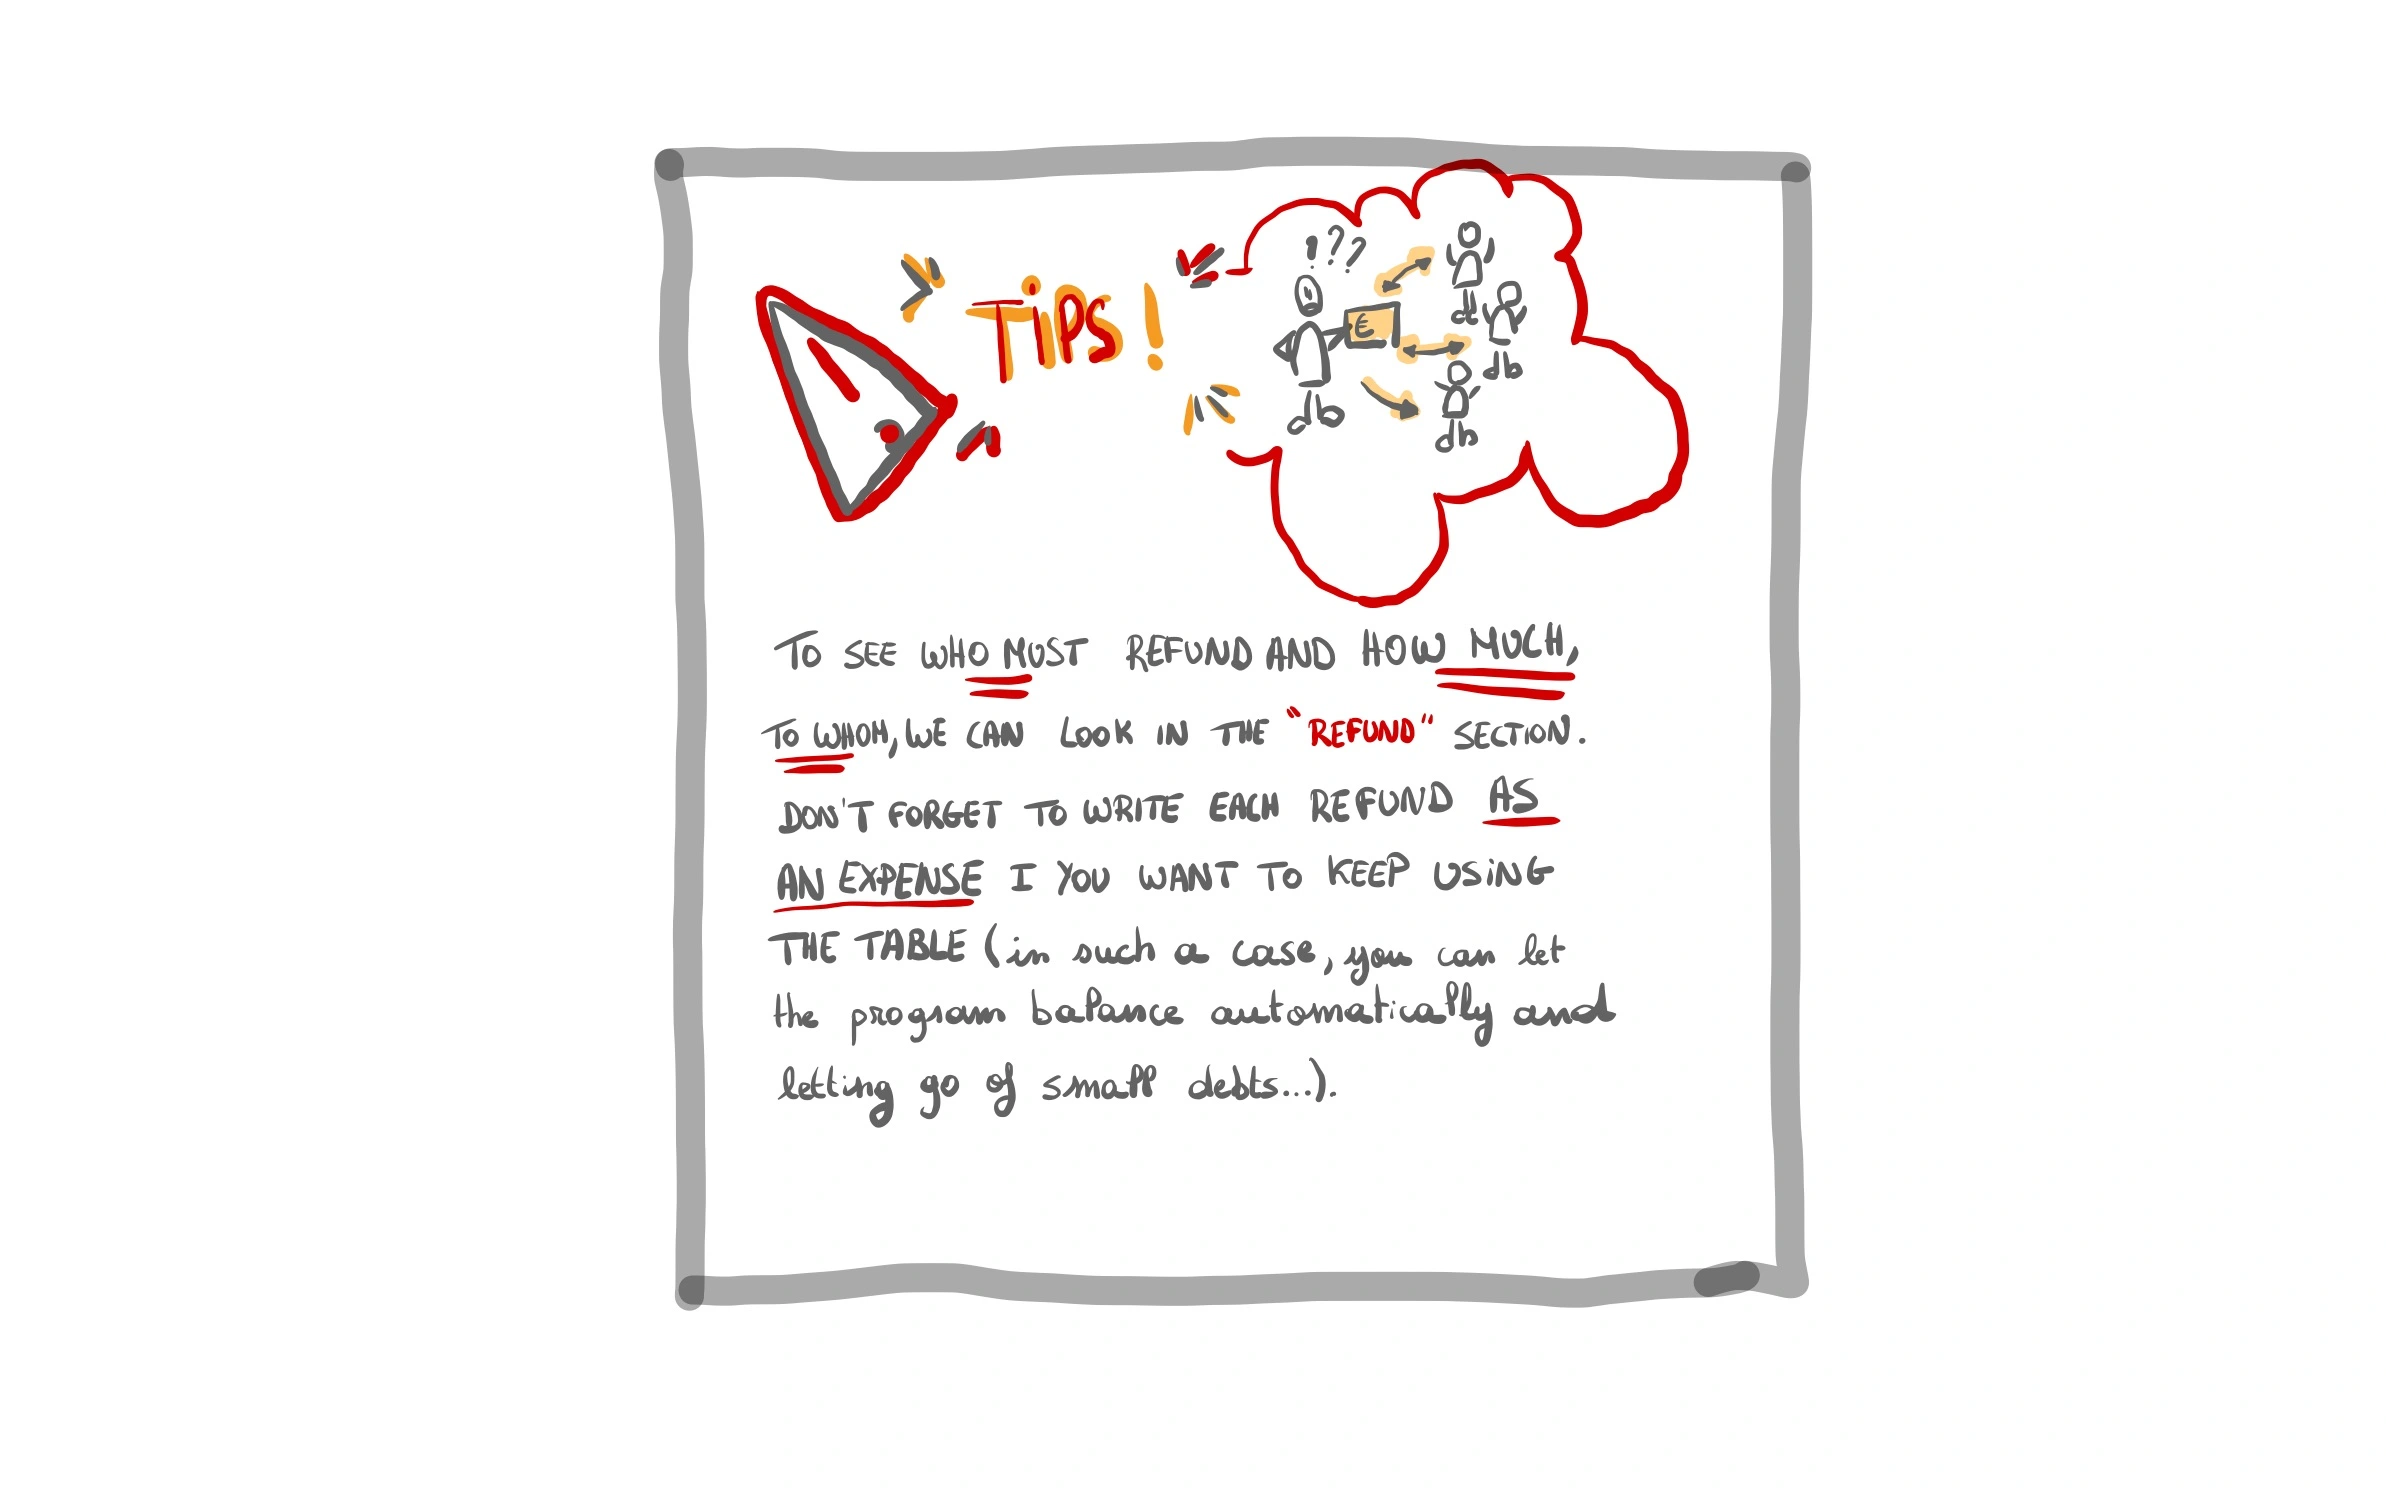 TiPS!
!??
E
TO SEE WHO MUST REFUND AND HOW MUCH,
TO WHOM, WE CAN LOOK IN THE "REFUND" SECTION.
DON'T FORGET TO WRITE EACH REFUND AS
AN EXPENSE I YOU WANT TO KEEP USING
THE TABLE (in such a case, you can let
the program balance automatically and
letting go of small debts...).